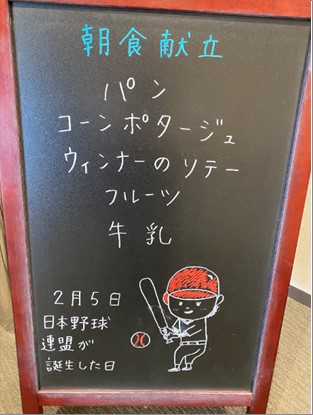 朝食献立
パン
コーンポタージュ
ウィンナーのソテー
フルーツ
牛乳
2月5日
日本野球
連盟が
誕生した日